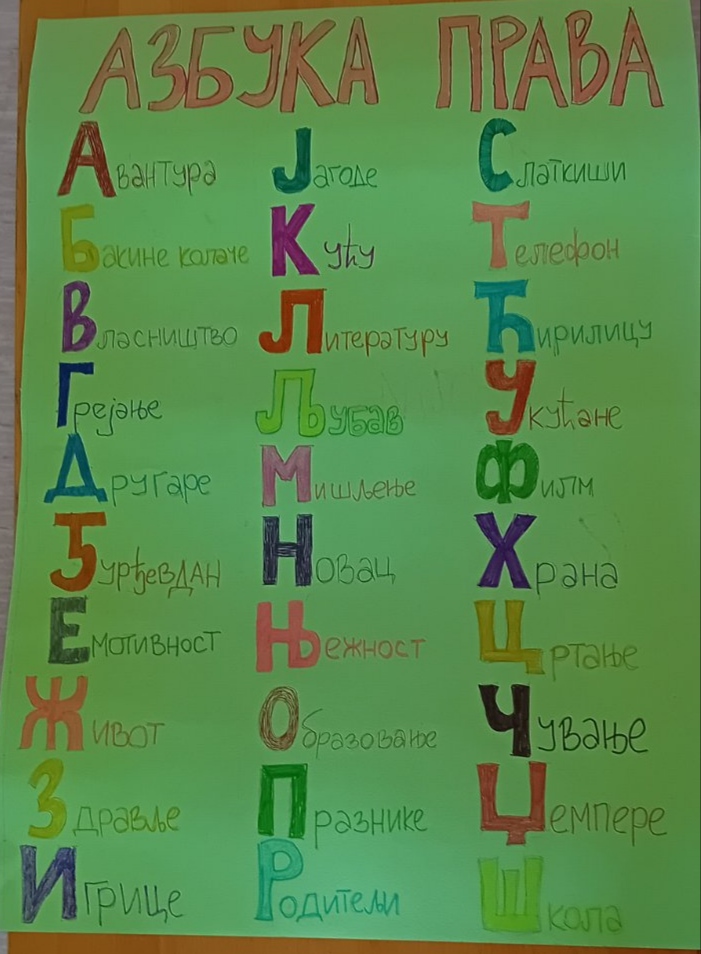 АЗБУКА ПРАВА
Авантура
Бакине колаче
Власништво
Грејање
Другаре
Ђурђевдан
Емотивност
Живот
Здравље
Игрице
Јагоде
Кућу
Литературу
Љубав
Мишљење
Новац
Њежност
Образовање
Празнике
Родитељи
Слаткиши
Телефон
Ћирилицу
Укућане
Филм
Храна
Цртање
Чување
Џемпере
Школа